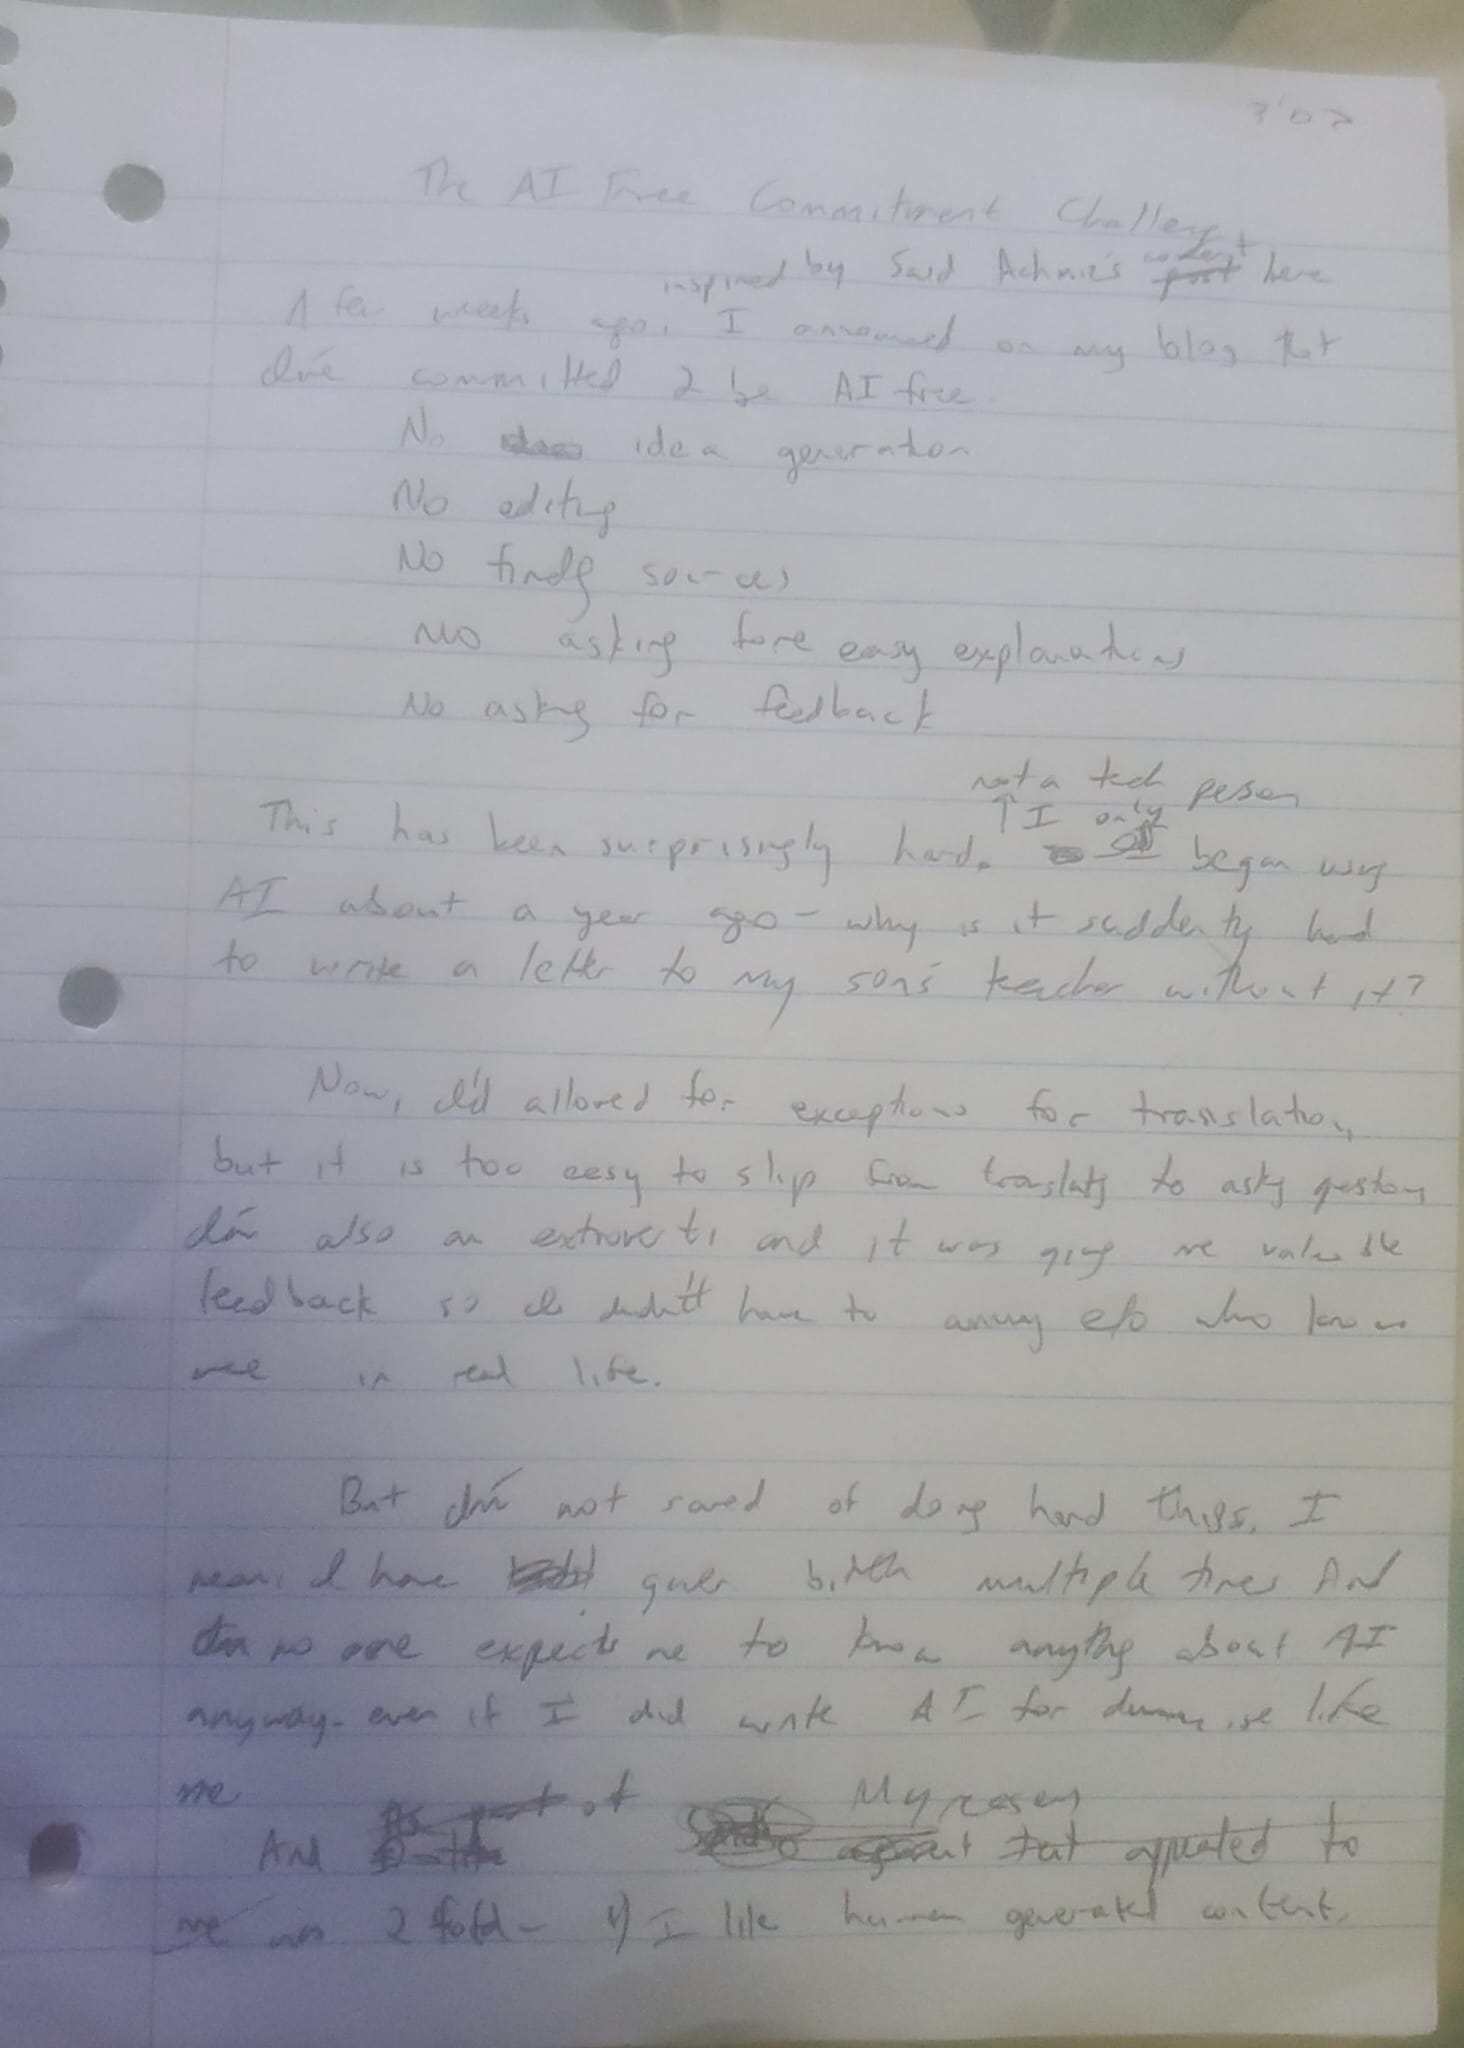 The AI Free Commitment Challeng
inspired by Said Achmiz's content here
A few weeks ago, I announced on my blog that
I've committed 2 be AI free.
No idea generation
No editing
No finding sources
No asking fore easy explanations
No asking for feedback
not a tech person
This has been surprisingly hard. I only began using
AI about a year ago - why is it suddenly hard
to write a letter to my son's teacher without it?
Now, I'd allowed for exceptions for translation,
but it is too easy to slip from translating to asking questions
I'm also an extrovert, and it was giving me valuable
feedback so I didn't have to annoy e/o who knows
me in real life.
But I'm not scared of doing hard things. I
mean, I have given birth multiple times And
no one expects me to know anything about AI
anyway - even if I did write AI for dummies like
me.
My reason
And
was 2 fold - 1) I like human generated content.